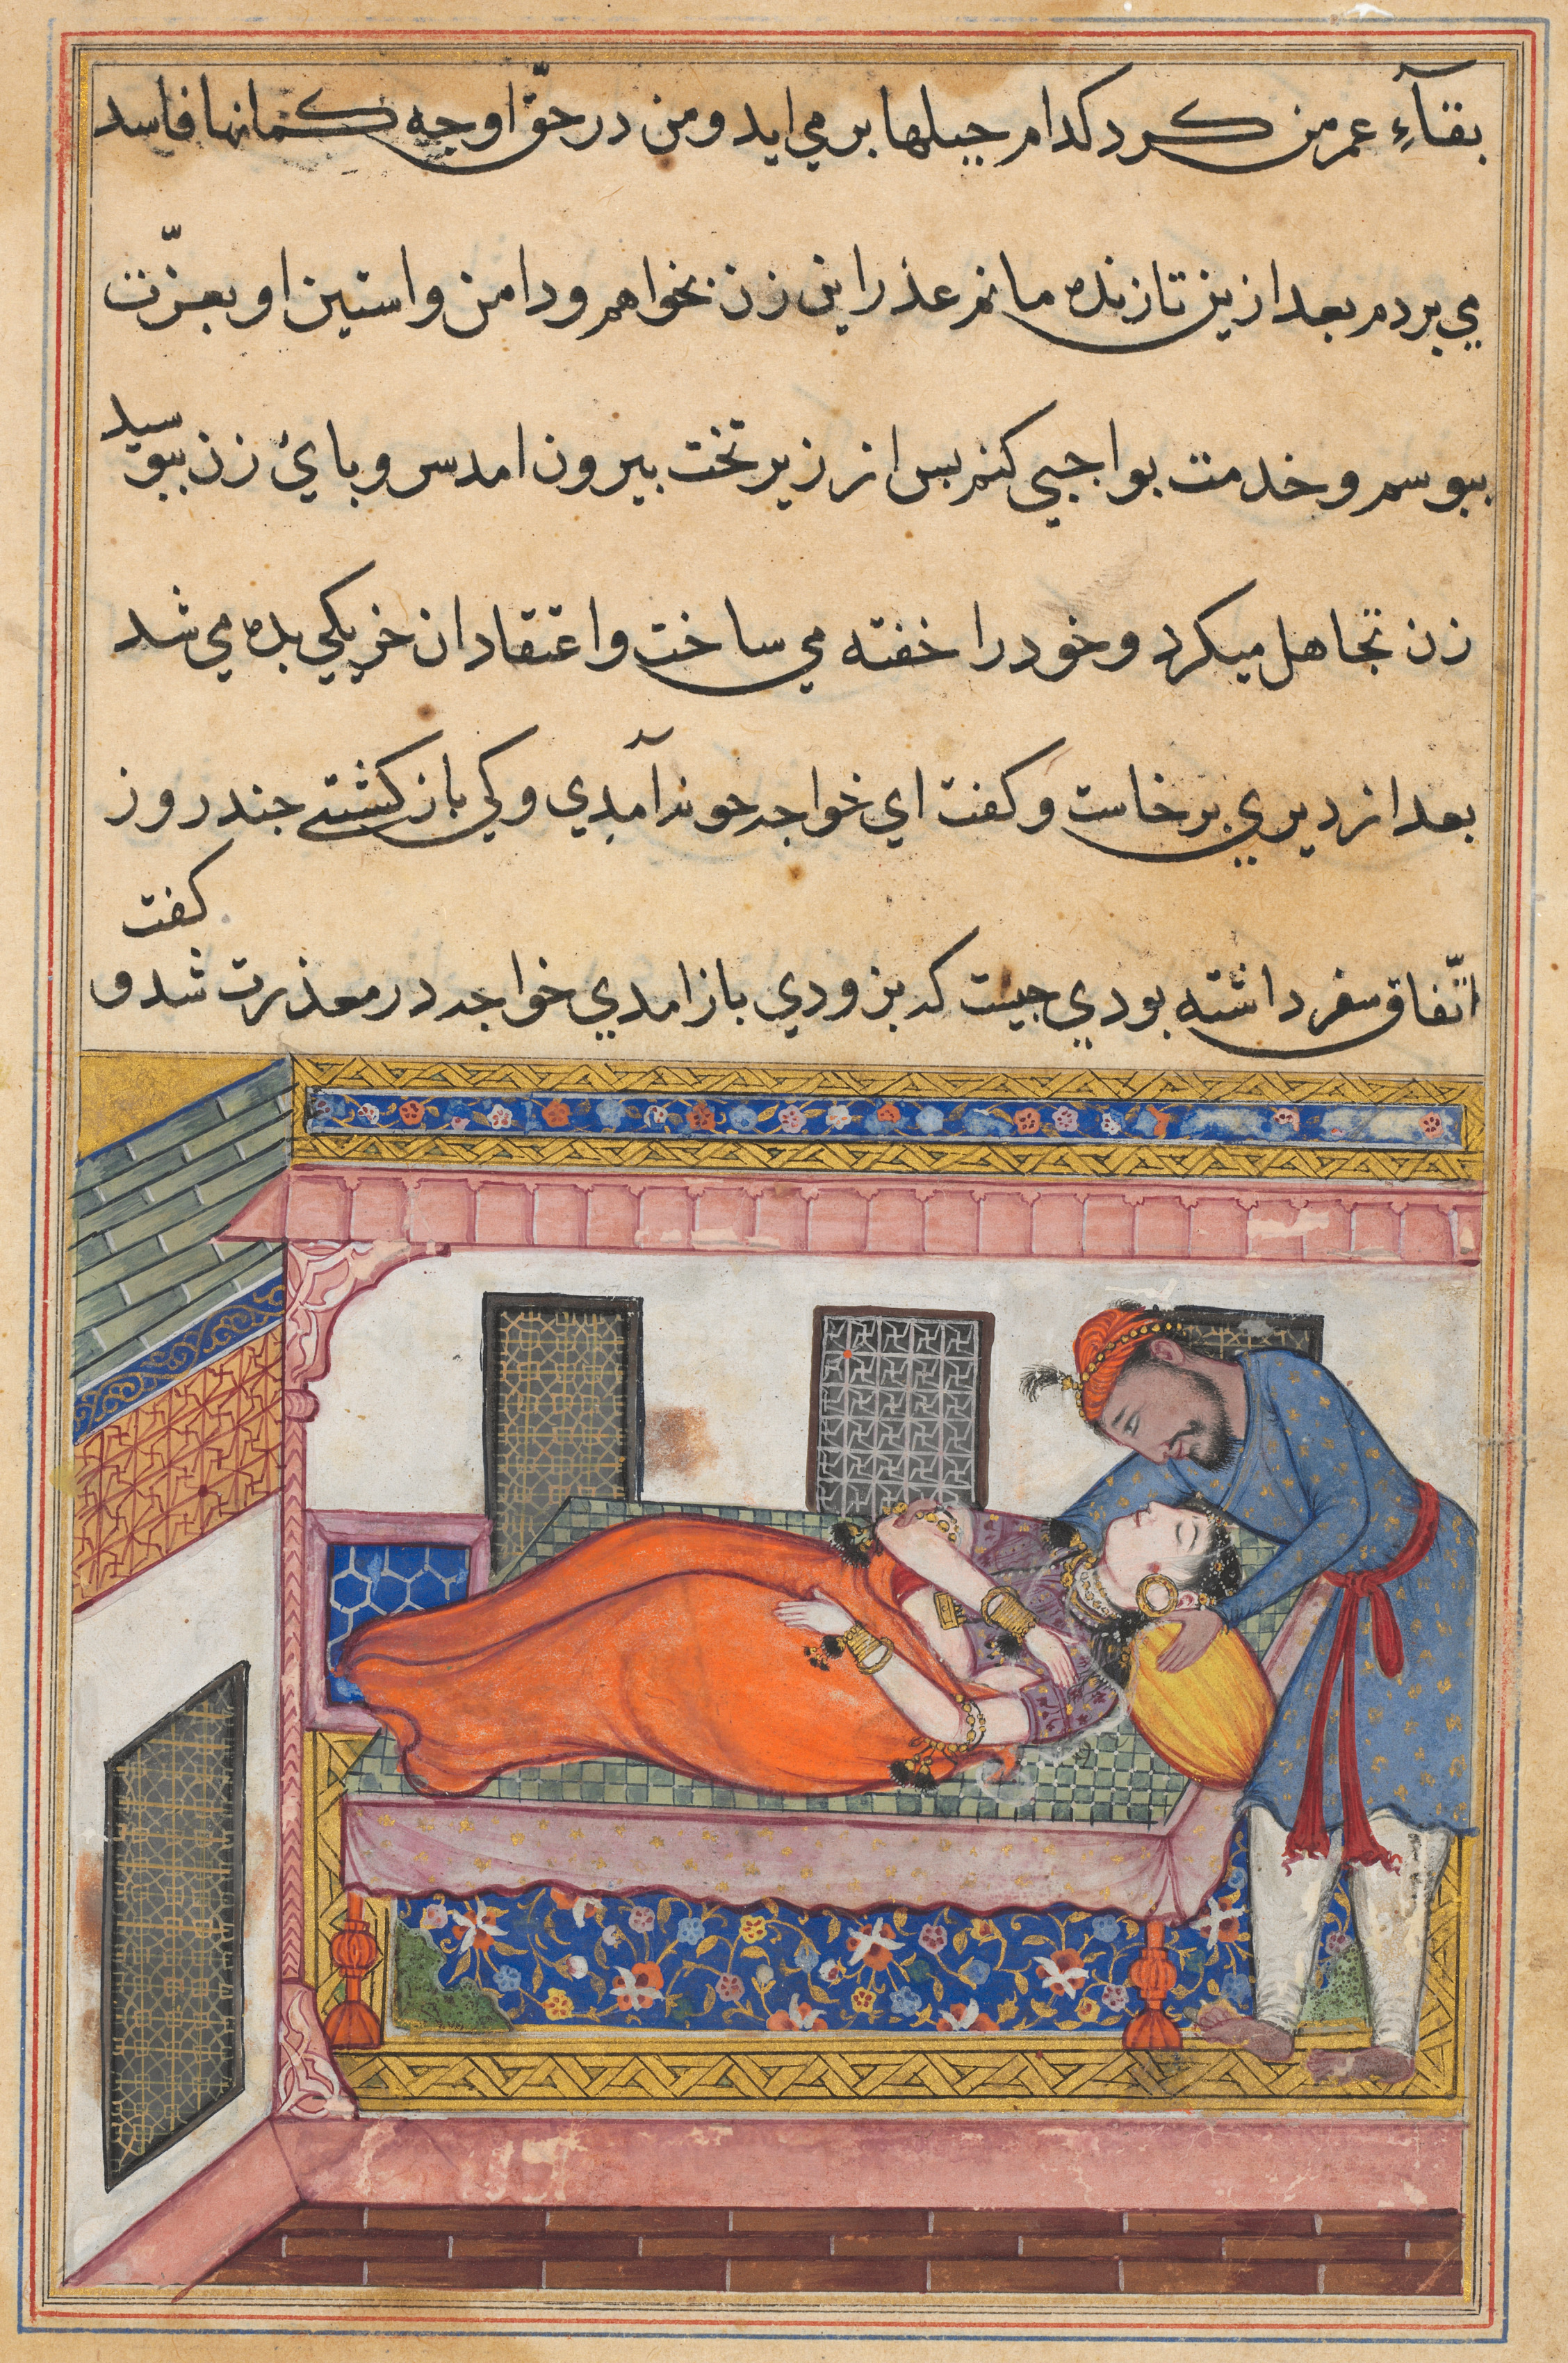 بقآءِ عمر من کرد کدام حیلها بر می اید و من در حقّ او جه کمانها فاسد
می بردم بعد ازین تا زنده مانم عذر این زن بخواهم و دامن و استین او بعزّت
ببوسم و خدمت بواجبی کنم بس از زیر تخت بیرون امد سر و بایٔ زن ببوسید
زن تجاهل میکرد و خود را خفته می ساخت و اعتقاد ان خر یکی بده می شد
بعد از دیری برخاست و کفت ای خواجه جونه آمدی و کی باز کشتی جند روز
اتّفاق سفر داشته بودی جیست که بزودی باز امدی خواجه در معذرت شد و کفت